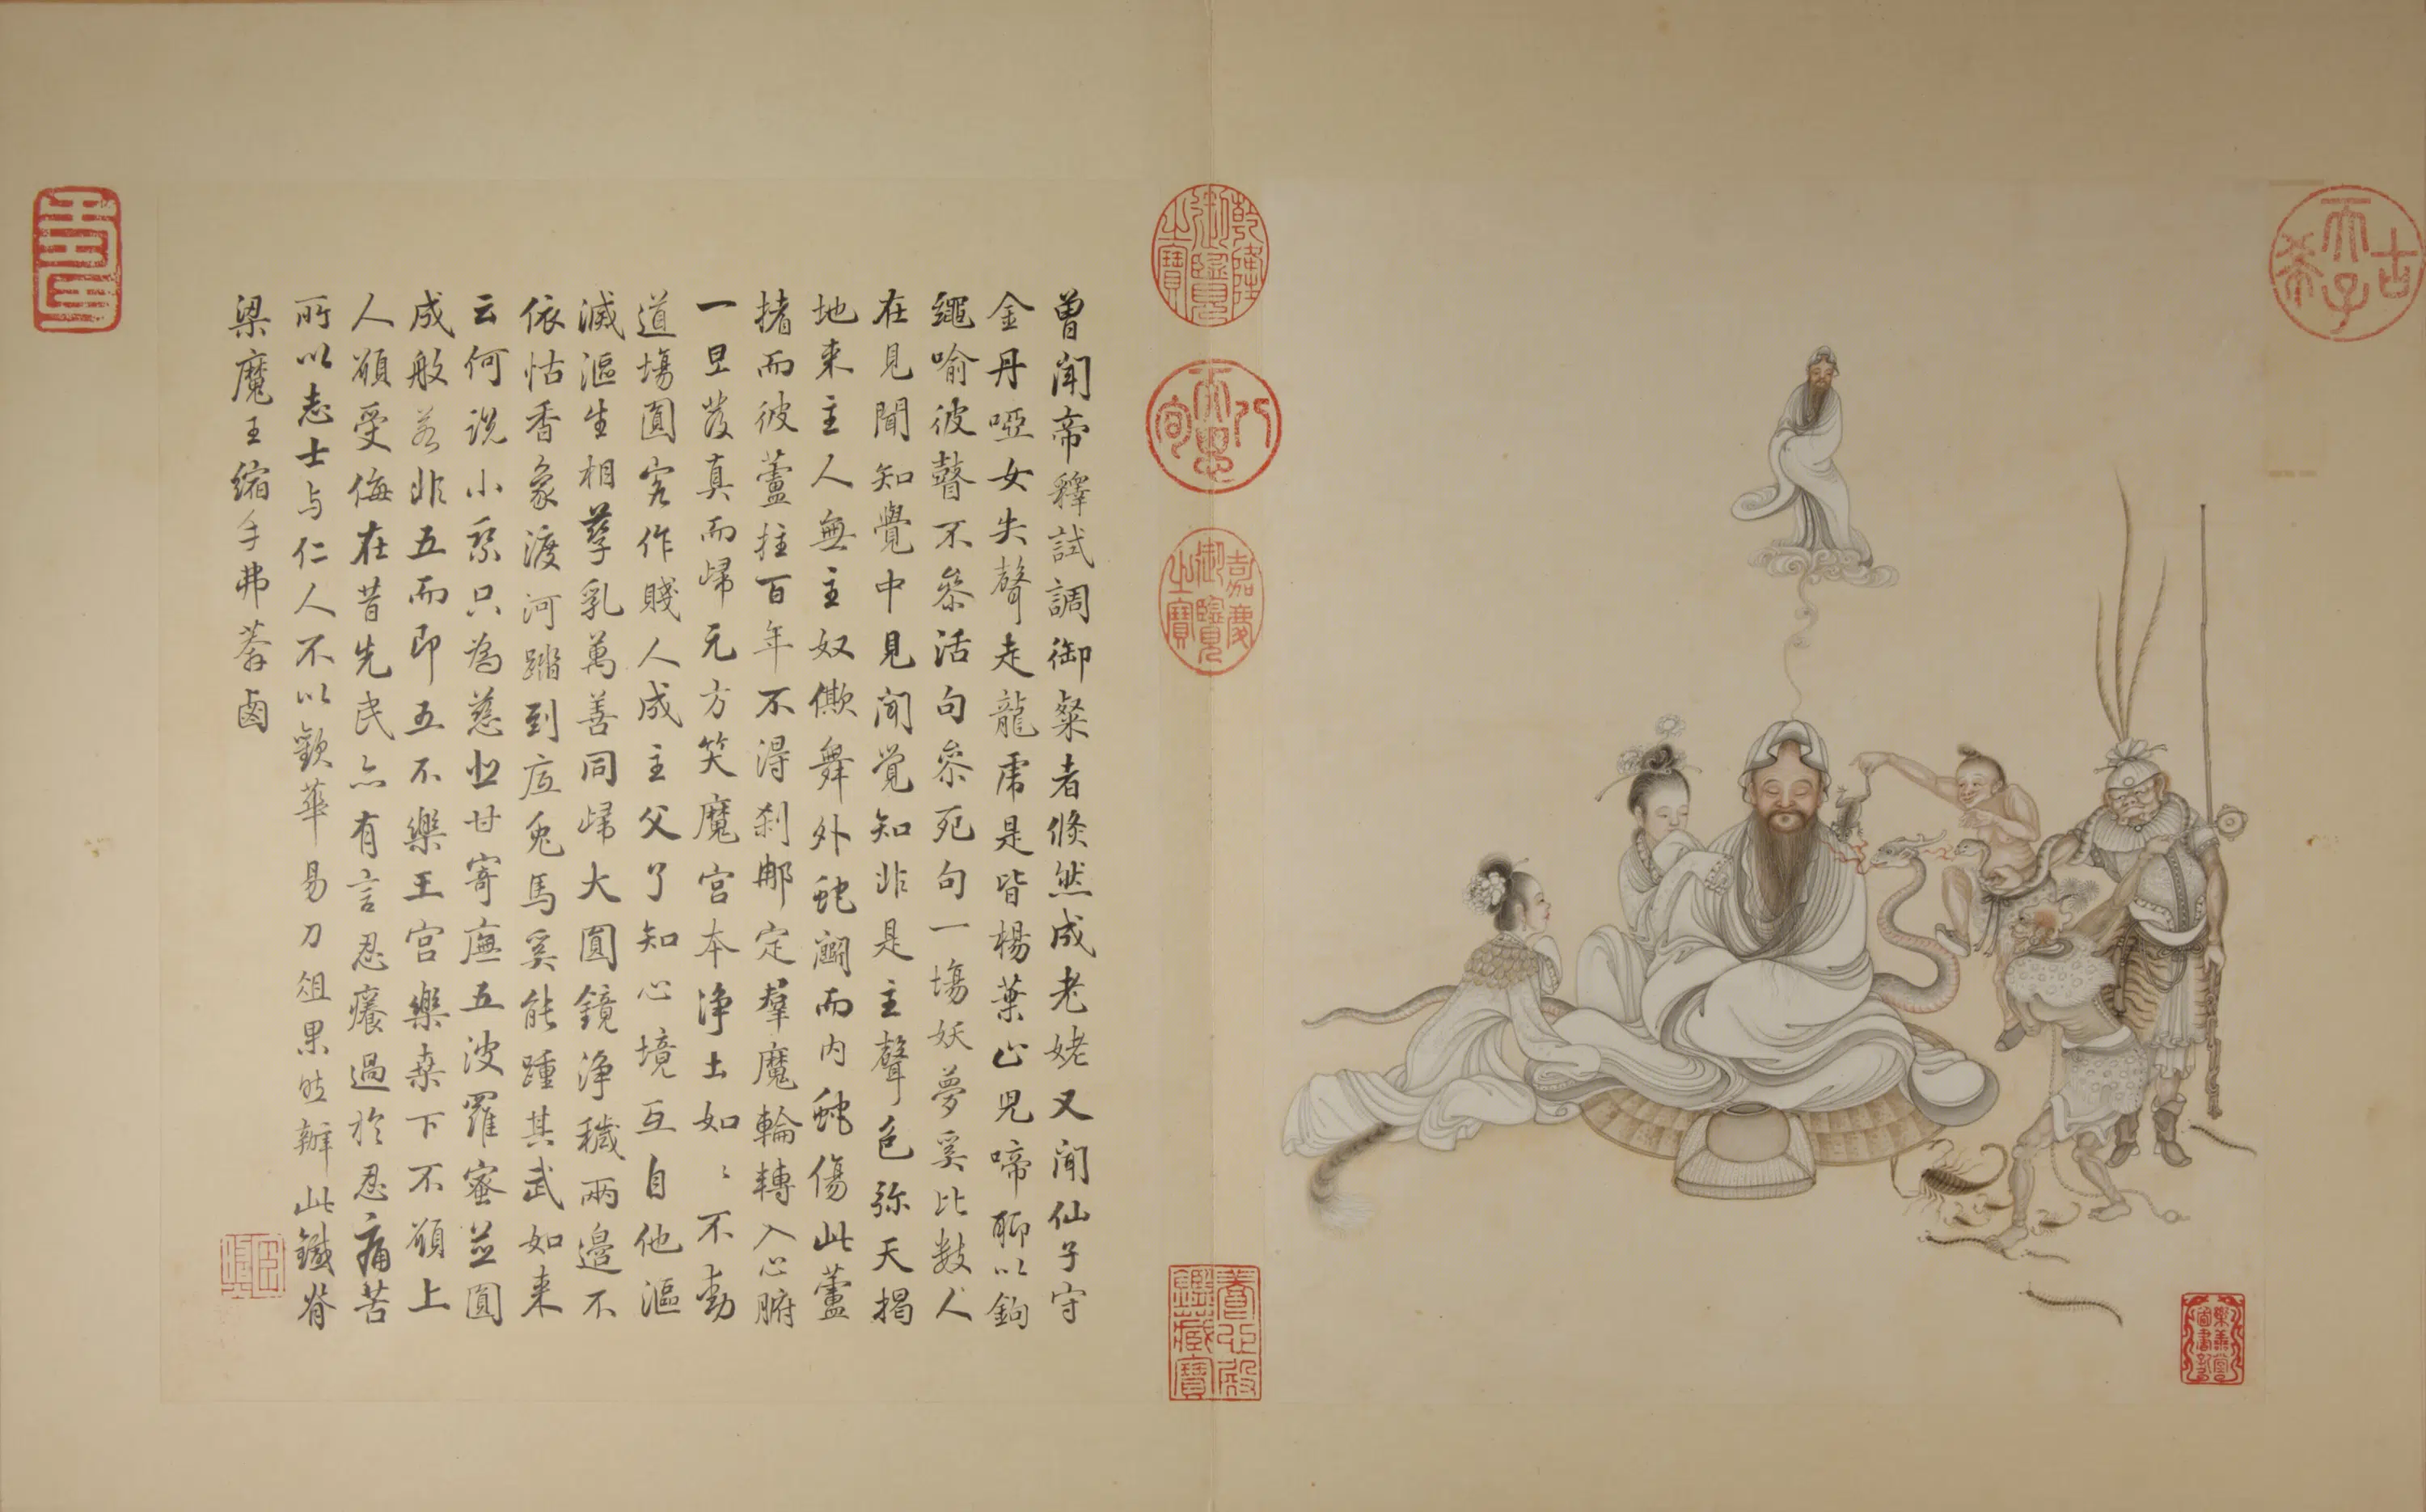 曾聞帝釋試調御粲者倏然成老姥又聞仙子守
金丹啞女失聲走龍虎是皆楊葉止兒啼聊以鉤
繩喻彼瞽不參活句參死句一場妖夢奚比數人
在見聞知覺中見聞覺知非是主聲色弥天揭
地來主人無主奴僛舞外蛇鬬而内蛇傷此蘆
揞而彼蘆拄百年不得刹那定羣魔輪轉入心腑
一旦發真而歸元方笑魔宮本淨土如〻不動
道場圓客作賤人成主父了知心境互自他漚
滅漚生相孳乳萬善同歸大圓鏡淨穢兩邊不
依怙香象渡河蹋到底兔馬奚能踵其武如来
云何説小乘只為慈悲甘寄廡五波羅蜜並圓
成般若非五而即五不樂王宮樂桒下不願上
人願受侮在昔先民亦有言忍癢過於忍痛苦
所以志士与仁人不以歡華易刀俎果能辦此鐵脊
梁魔王縮手弗莽鹵
乾隆御覽之寶
八徵耄念
嘉慶御覽之寶
養心殿鑒藏寶
古希天子
壽
樂善堂圖書記